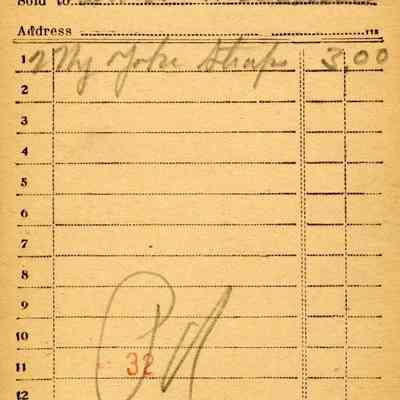 Sold to
Address
1 2 Ny Yoke Straps 3.00
2
3
4
5
6
7
8
9
10
11 32
12